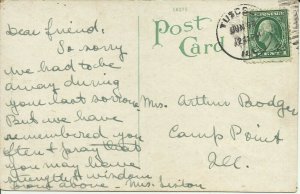 Dear friend:
So sorry
we had to be
away during
your last sorrow.
But we have
remembered you
often & pray that
you may have
strength & wisdom
from above - Mrs. Liston
Post
Card
TUSCO
JUN
Mrs. Arthur Bodge
Camp Point
Ill.